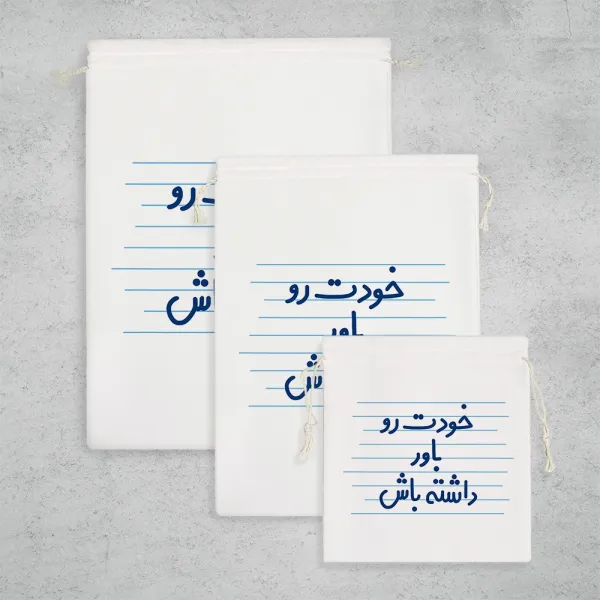 رو
باش
خودت رو
باور
باش
خودت رو
باور
داشته باش